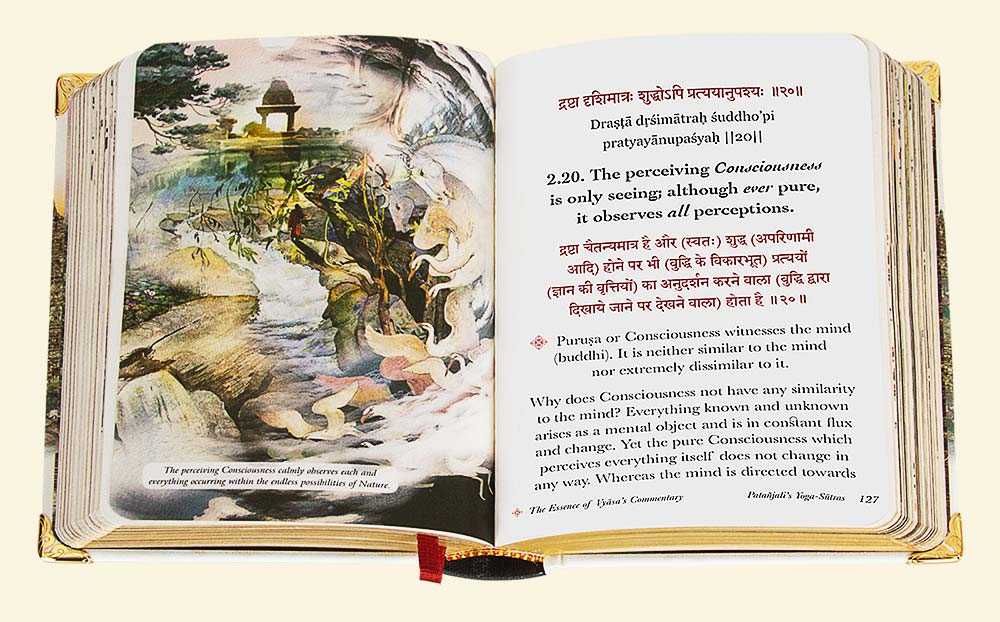 The perceiving Consciousness calmly observes each and
everything occurring within the endless possibilities of Nature.
द्रष्टा दृशिमात्रः शुद्धोऽपि प्रत्ययानुपश्यः ॥२०॥
Draṣṭā dṛśimātraḥ śuddho'pi
pratyayānupaśyaḥ ||20||
2.20. The perceiving Consciousness
is only seeing; although ever pure,
it observes all perceptions.
द्रष्टा चैतन्यमात्र है और (स्वतः) शुद्ध (अपरिणामी
आदि) होने पर भी (बुद्धि के विकारभूत) प्रत्ययों
(ज्ञान की वृत्तियों) का अनुदर्शन करने वाला (बुद्धि द्वारा
दिखाये जाने पर देखने वाला) होता है ॥२०॥
Puruṣa or Consciousness witnesses the mind
(buddhi). It is neither similar to the mind
nor extremely dissimilar to it.
Why does Consciousness not have any similarity
to the mind? Everything known and unknown
arises as a mental object and is in constant flux
and change. Yet the pure Consciousness which
perceives everything itself does not change in
any way. Whereas the mind is directed towards
The Essence of Vyāsa's Commentary Patañjali's Yoga-Sūtras 127